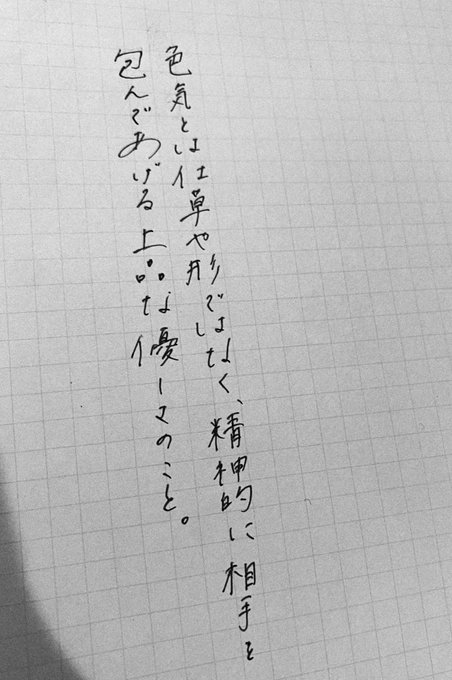 色気とは仕草や形ではなく、精神的に相手を
包んであげる上品な優しさのこと。